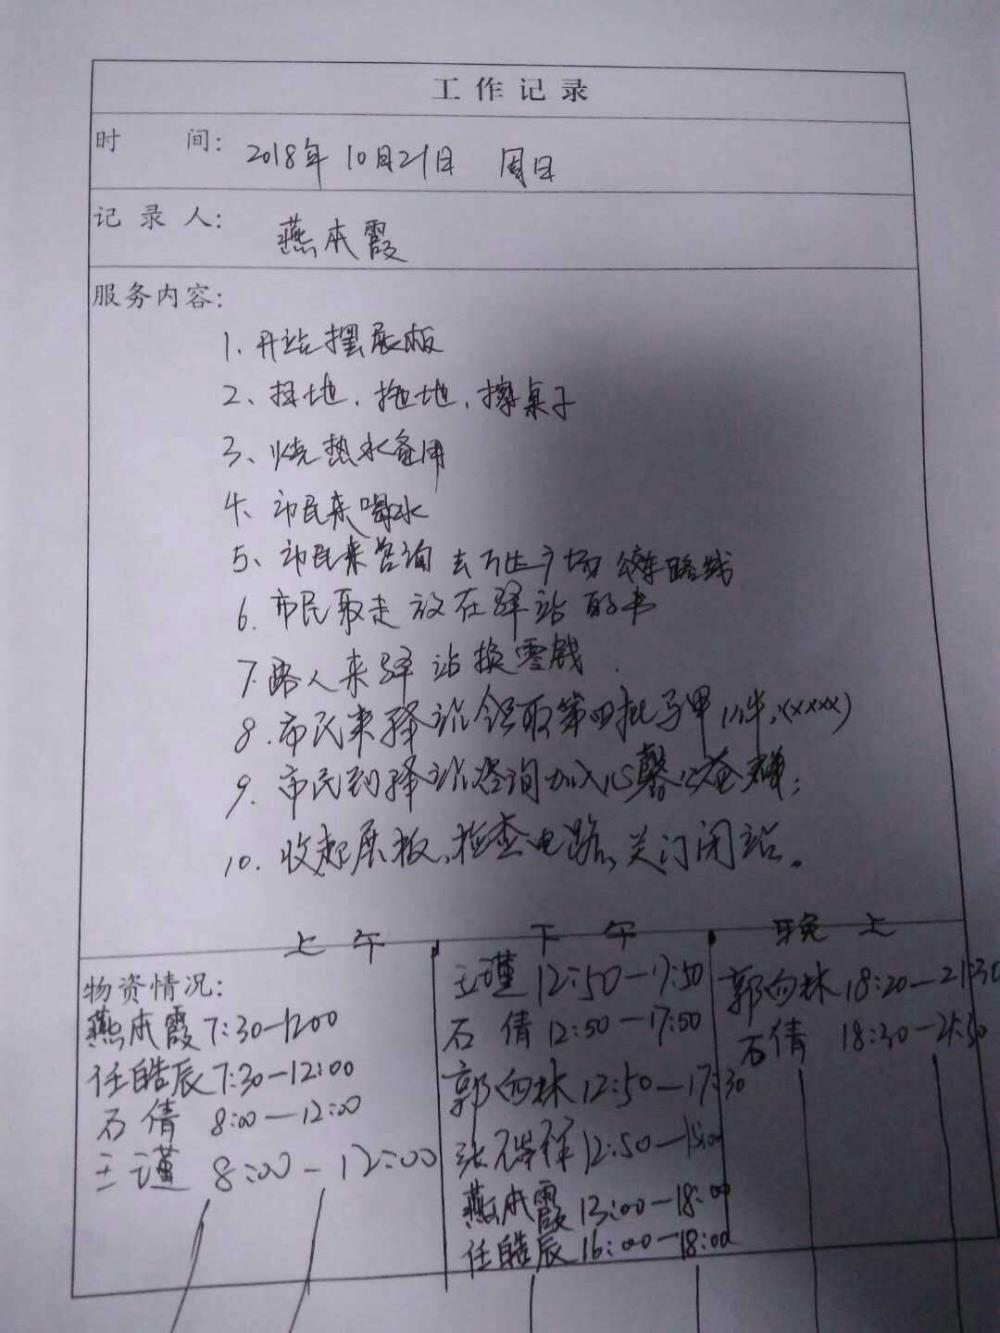 工作记录
时 间: 2018年10月21日 周日
记录人: 燕本霞
服务内容:
1、开站摆展板
2、扫地、拖地、擦桌子
3、烧热水备用
4、市民来喝水
5、市民来咨询去万达广场公交车路线
6、市民取走放在驿站的书
7、路人来驿站换零钱
8、市民来驿站领取第四批马甲 (xxxx)
9、市民到驿站咨询加入心馨公益群;
10、收起展板、检查电路、关门闭站。
上午 下午 晚上
物资情况:
燕本霞 7:30-12:00
任皓辰 7:30-12:00
石倩 8:00-12:00
王瑾 8:00-12:00
王瑾 12:50-17:50
石倩 12:50-17:50
郭向林 12:50-17:30
张祥 12:50-15:00
燕本霞 13:00-18:00
任皓辰 16:00-18:00
郭向林 18:20-21:30
石倩 18:30-21:30